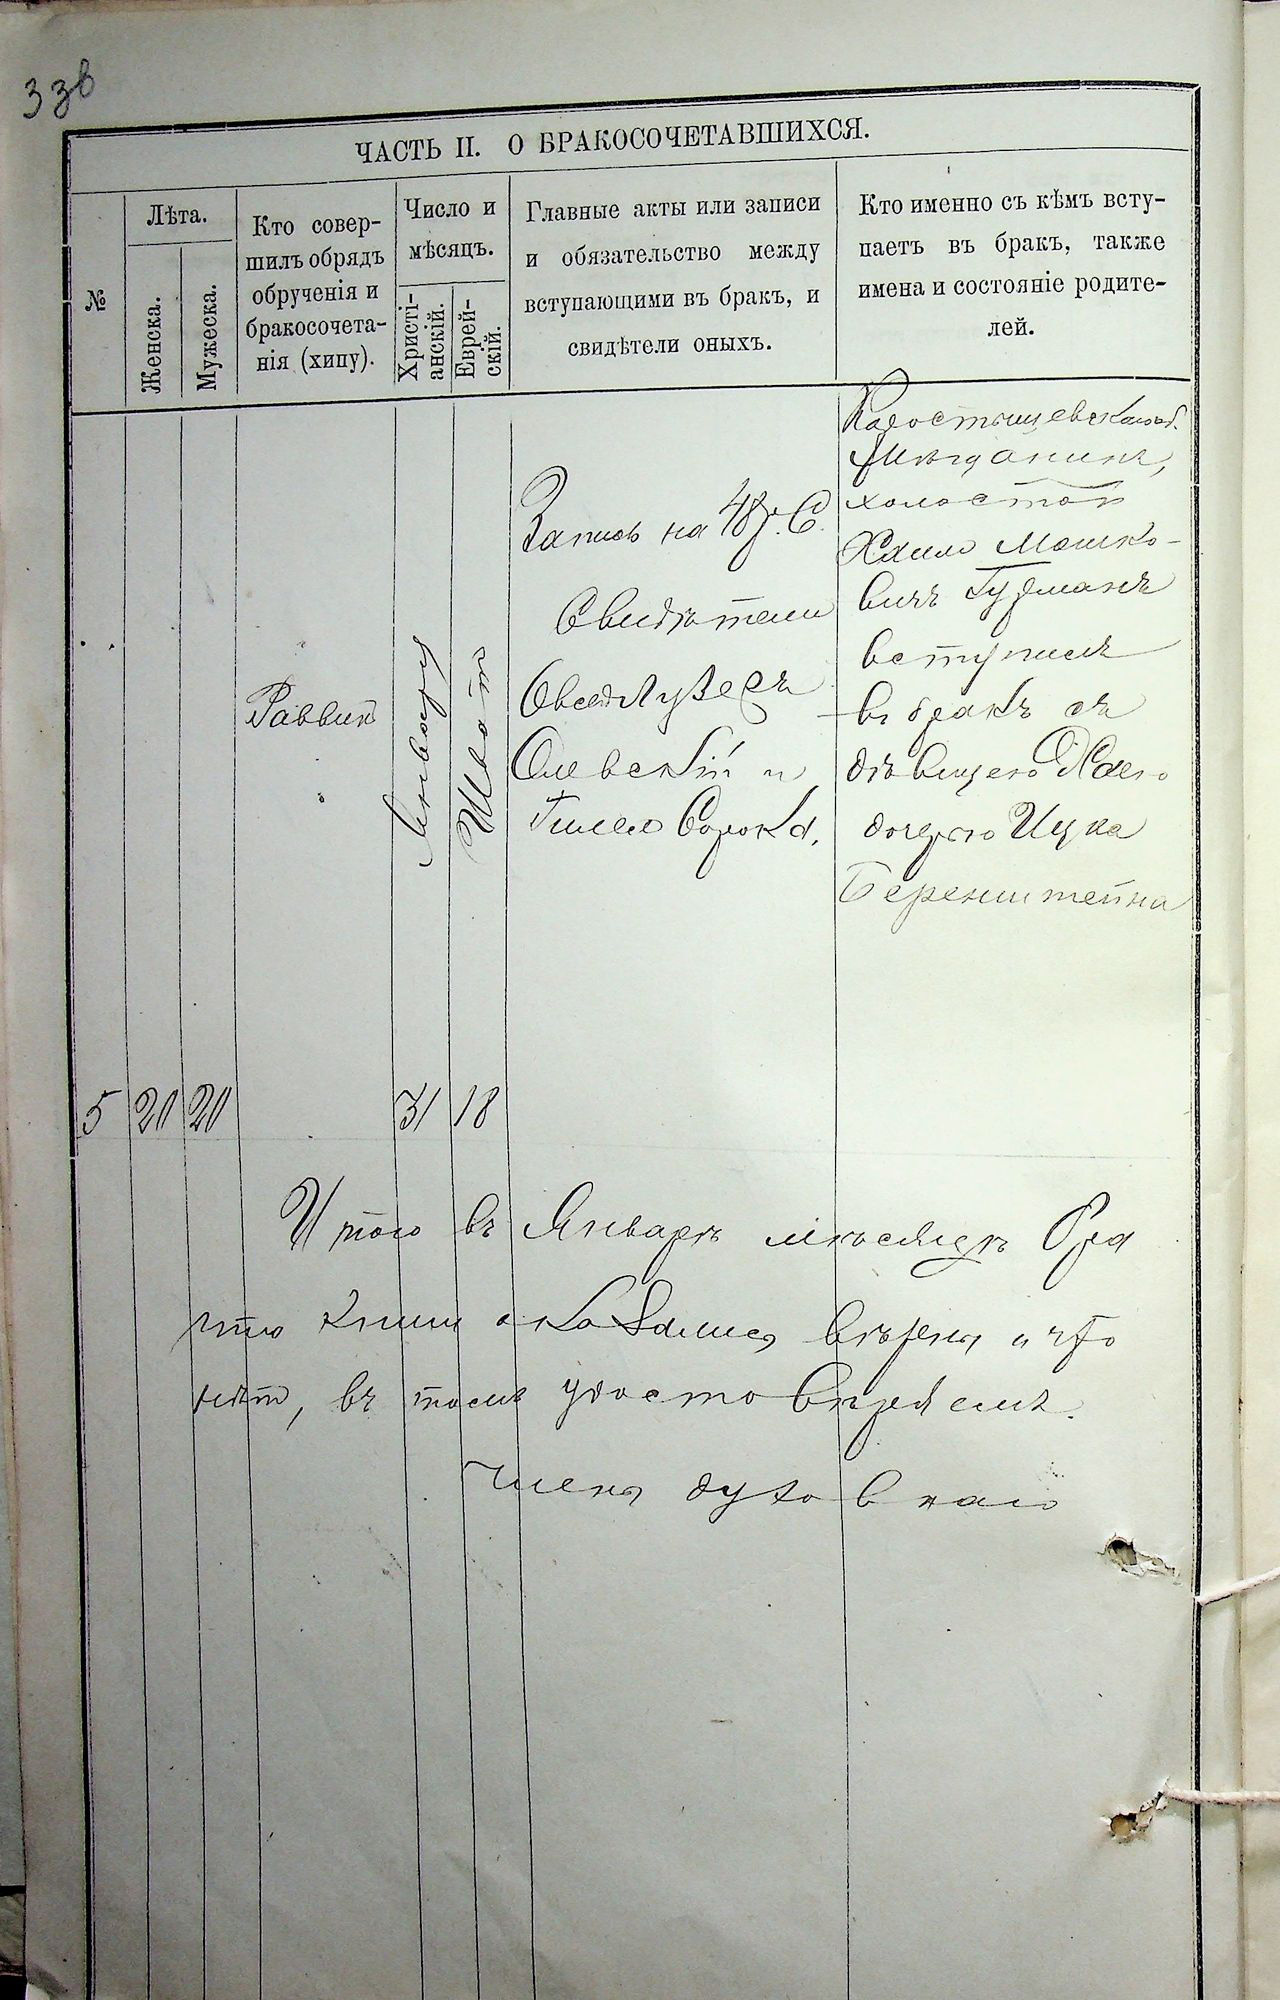 338
ЧАСТЬ II. О БРАКОСОЧЕТАВШИХСЯ.
№
Лѣта.
Женска.
Мужеска.
Кто совер-
шилъ обрядъ
обрученія и
бракосочета-
нія (хипу).
Число и
мѣсяцъ.
Христі-
анскій.
Еврей-
скій.
Главные акты или записи
и обязательство между
вступающими въ бракъ, и
свидѣтели оныхъ.
Кто именно съ кѣмъ всту-
паетъ въ бракъ, также
имена и состояніе родите-
лей.
5
20
20
Раввин
Январу
31
Шват
18
Запись на 48 р. С.
Свидѣтели
Олевскій и
Гилел Сорока,
Мѣщанинъ,
холостой
Хаим Мошко-
вичъ Гузманъ
вступилъ
въ бракъ съ
дѣвицею Хаею
дочерью Ицка
Беренштейна
Итого въ Январѣ мѣсяцѣ бра
книги оказалися вѣрны и что
нѣт, въ томъ удостовѣряемъ.
Члены духовнаго